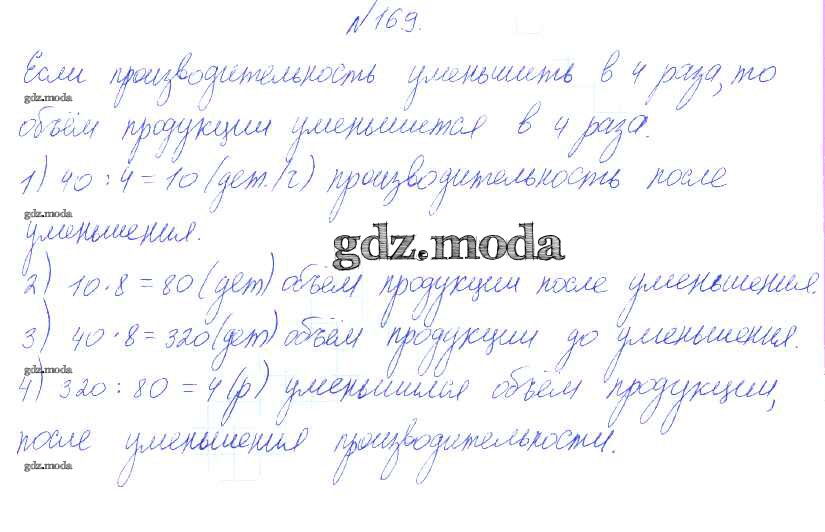 №169.
Если производительность уменьшить в 4 раза, то
gdz.moda
объём продукции уменьшится в 4 раза.
1) 40 : 4 = 10 (дет./ч) производительность после
gdz.moda
уменьшения.
gdz.moda
2) 10 · 8 = 80 (дет) объём продукции после уменьшения.
3) 40 · 8 = 320 (дет) объём продукции до уменьшения.
gdz.moda
4) 320 : 80 = 4 (р) уменьшился объём продукции,
после уменьшения производительности.
gdz.moda